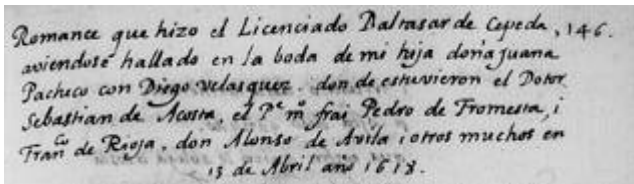 Romance que hizo el Licenciado Baltasar de Cepeda, 146.
aviendose hallado en la boda de mi hija doña Juana
Pacheco con Diego Velasquez. don de estuvieron el Dotor
Sebastian de Acosta, el Pe mo frai Pedro de Fromesta, i
Franco de Rioja, don Alonso de Avila i otros muchos en
13 de Abril año 1618.